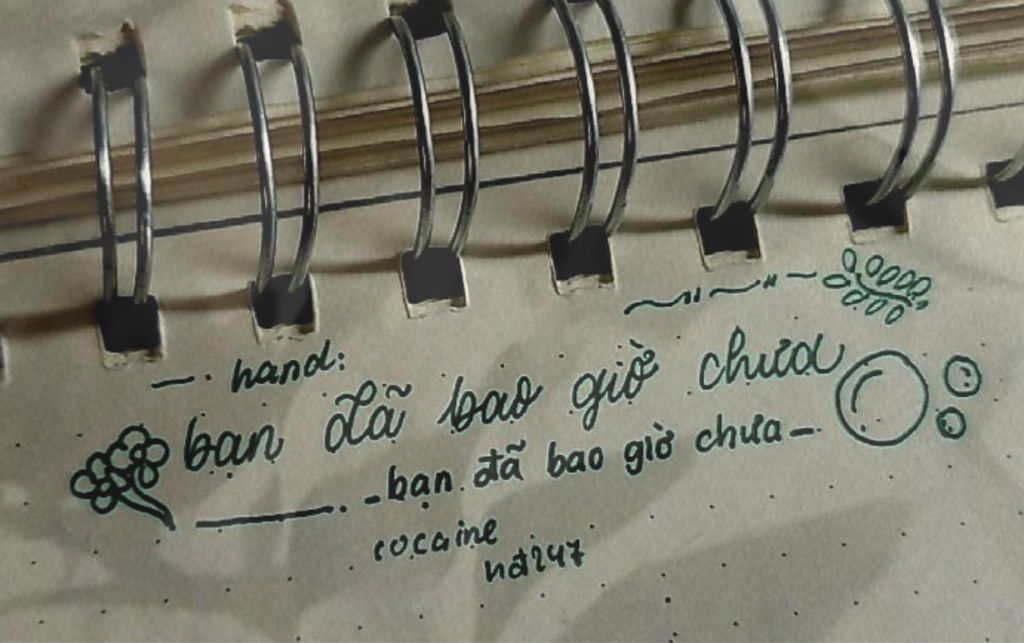 — . hand:
bạn đã bao giờ chưa
- bạn đã bao giờ chưa -.
cocaine
nđ247